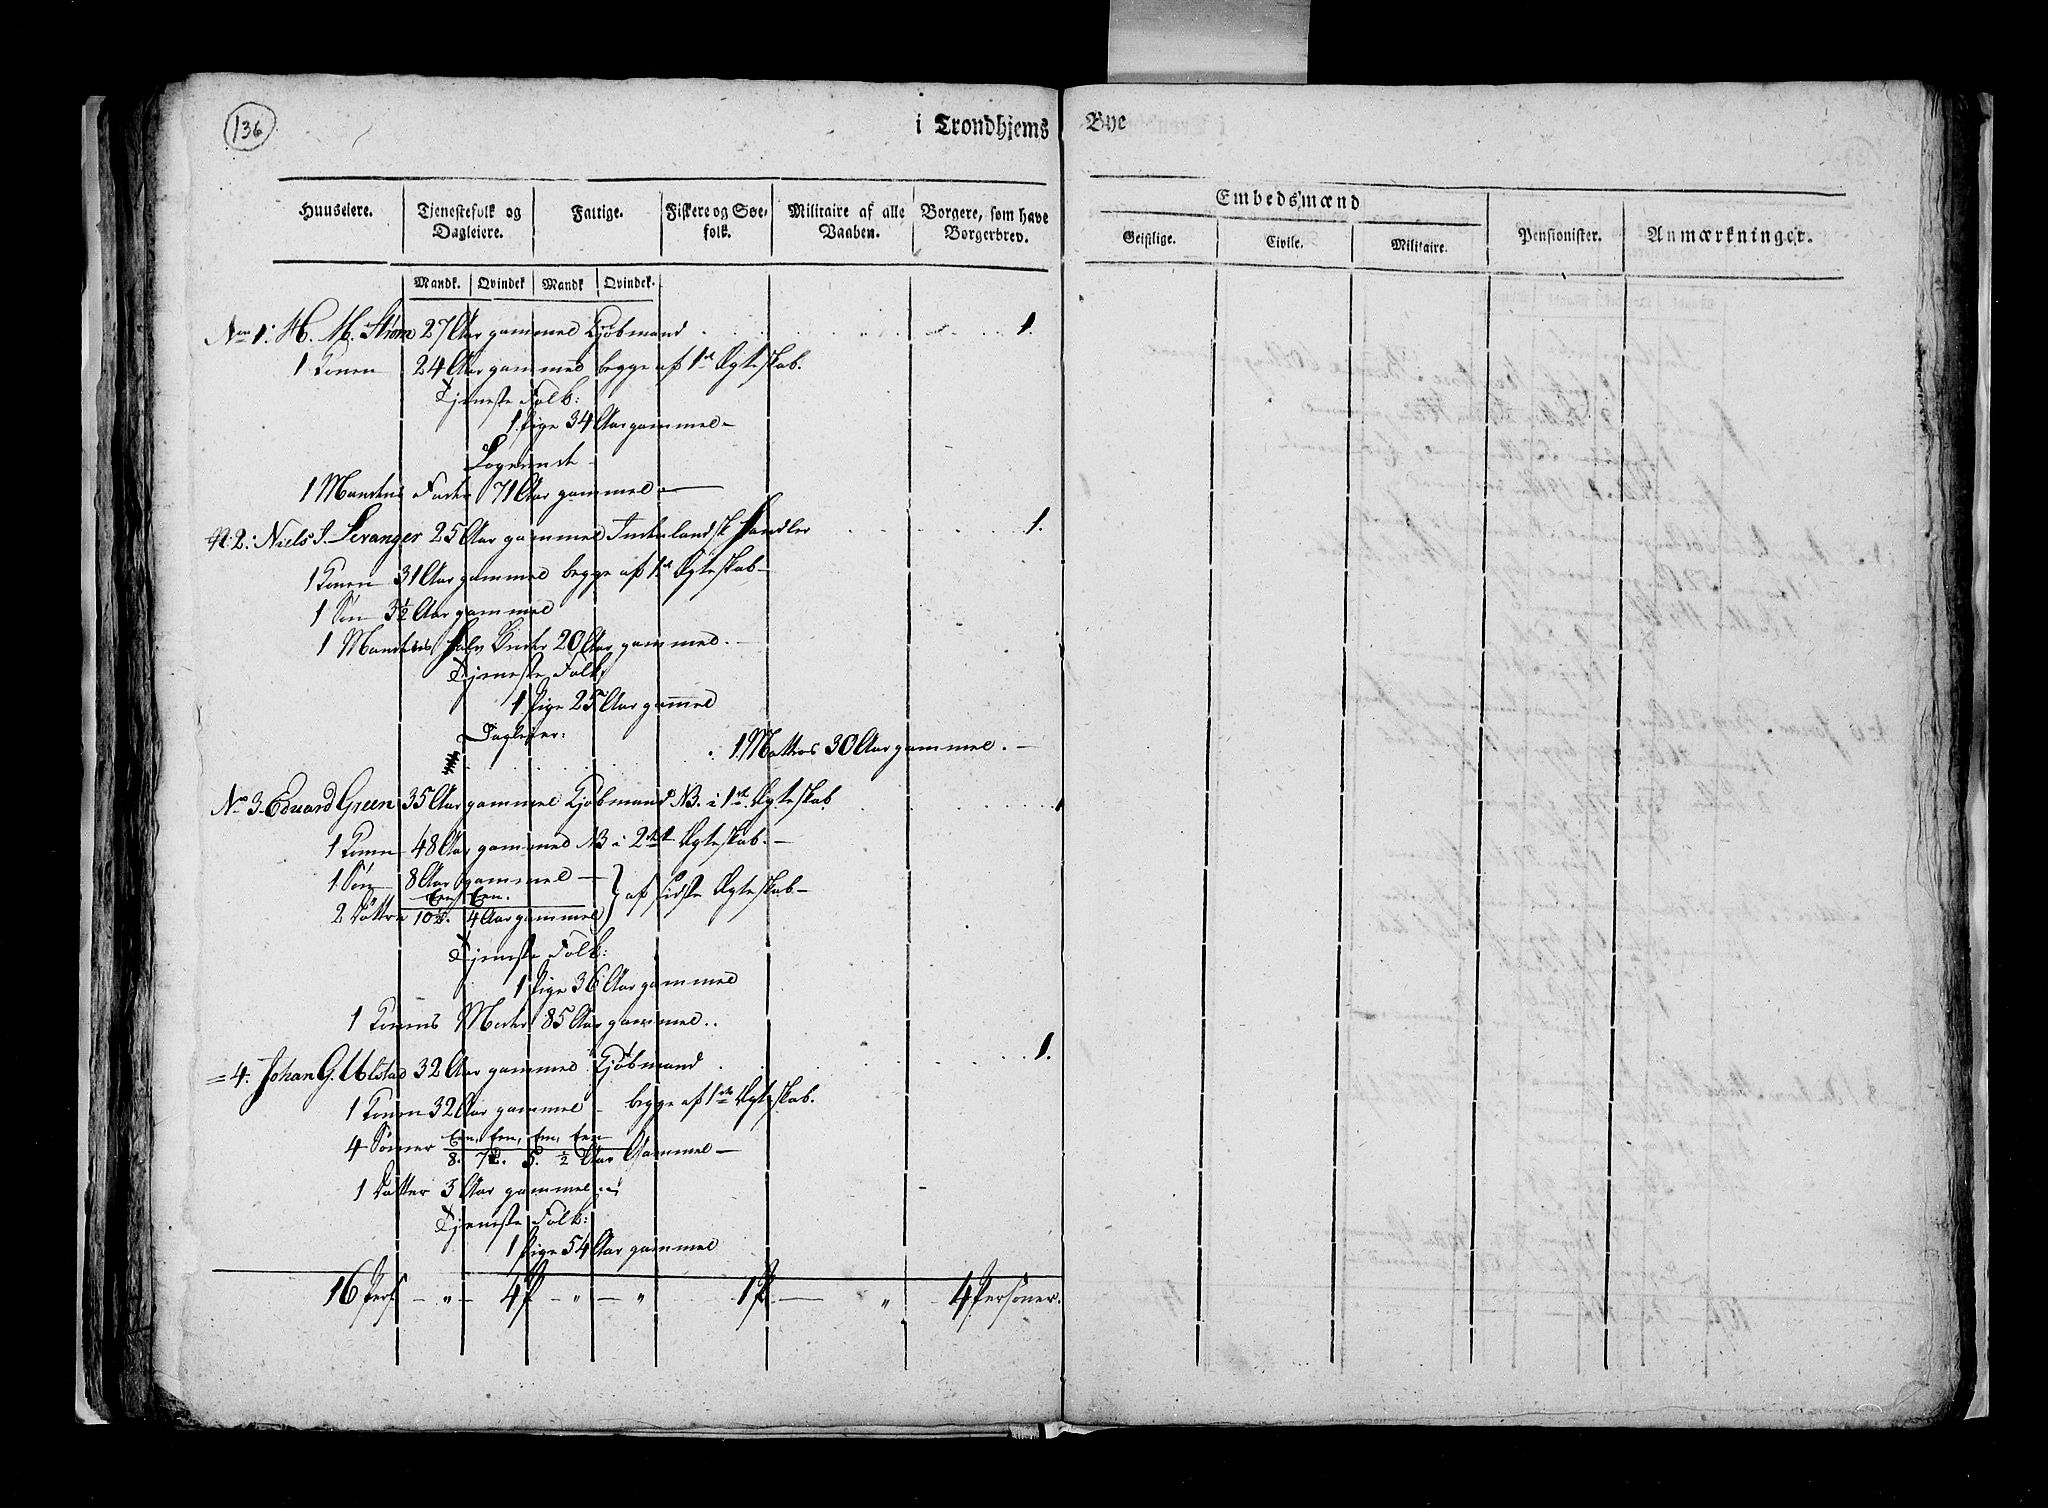 136
i Trondhjems Bye
Huuseiere. Tjenestefolk og Dagleiere. Fattige. Fiskere og Søefolk. Militaire af alle Vaaben. Borgere, som have Borgerbrev. Embedsmænd Pensionister. Anmærkninger.
Geistlige. Civile. Militaire.
Mandk. Qvindek Mandk Qvindek.
No 1: H. M. Strøm 27 Aar gammel Kjøbmand 1.
1 Konen 24 Aar gammel begge af 1te Ægteskab.
Tjeneste Folk:
1 Pige 34 Aar gammel –
Logerende –
1 Mandens Fader 71 Aar gammel –
N: 2: Niels J. Levanger 25 Aar gammel Inderlandsk Handler 1.
1 Konen 31 Aar gammel begge af 1te Ægteskab –
1 Søn 3½ Aar gammel
1 Mandens halv Broder 20 Aar gammel. –
Tjeneste Folk:
1 Pige 25 Aar gammel
Dagleier:
1 Matros 30 Aar gammel. –
No 3. Eduard Green 35 Aar gammel Kjøbmand NB. i 1te Ægteskab 1
1 Konen 48 Aar gammel NB i 2det Ægteskab. –
1 Søn 8 Aar gammel – } af sidste Ægteskab –
Een, Een.
2 Døttre 10½. 4 Aar gammel
Tjeneste Folk:
1 Pige 36 Aar gammel
1 Konens Moder 85 Aar gammel..
= 4: Johan G. Ulstad 32 Aar gammel Kjøbmand 1.
1 Konen 32 Aar gammel – begge af 1te Ægteskab.
Een, Een, Een, Een
4 Sønner 8. 7½. 5. ½ Aar Gammel –
1 Datter 3 Aar gammel
Tjeneste Folk:
1 Pige 54 Aar gammel
16 Pers – " – 4 P – " – " 1 P – " – 4 Personer.